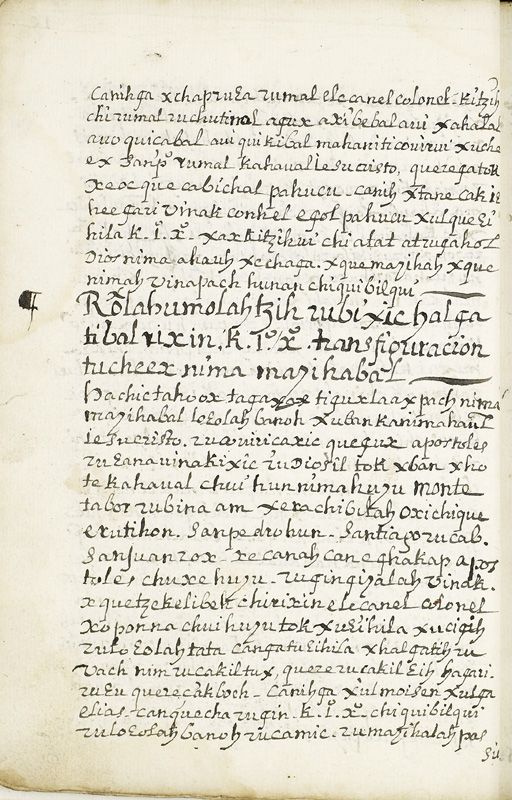 Canihga xchapruƐa rumal elecanel colonel. Kitzih
chi rumal ruchutinal aqux axibebal aui xahalal
auo quicabal aui quikibal mahaniticouirui xuche
ex Sanp̃o rumal Kahaual Iesucristo, queregatok
xeoc que cabichal pahucu. canih xtane cakik
heegari Vinak conhel egol pahucu xulqueƐi
hila K. I. X. xax Kitzihui chi atat atrugahol
Dios nima ahauh xechaga. xquemayihah xque
nimah Vinapach hunan chiquibilqui
Rolahumolahtzih rubixic halga
tibal rixin. K. I. X. transfiguracion
tucheex nima mayihabal
Hachictahoox tagaxox tiquxlaax pach nima
mayihabal loƐolah banoh xuban Kanimahaul
Iesucristo. rucouiricaxic quequx apostoles
ruƐana uinakixic ruDiosil tok xban xho
te Kahaual chui hun nima huyu monte
tabor rubinaam xerachibilah oxichique
erutihon. Sanpedro hun. Santiago rucab.
San Juan rox. xecanah can eghakap apos
toles chuxe huyu. rugingiyalah Vinak.
xquetzekelibeh chirixin elecanel colonel
xoponna chui huyu tok xuƐihila xucigih
ruloƐolah tata cangatuƐihila xhalgatih ru
Vach nim rucakiltux, quere rucakil Ɛih hagari.
ruƐu querecakboch. Canihga xul moisen xulga
elias. canquecha rugin. K. I. X. chiquibilqui
ruloƐolah banoh rucamic. rumayihalah pas
siu